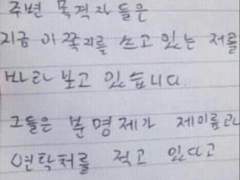 주변 목격자들은
지금 이 쪽지를 쓰고 있는 저를
바라 보고 있습니다.
그들은 분명 제가 제 이름과
연락처를 적고 있다고